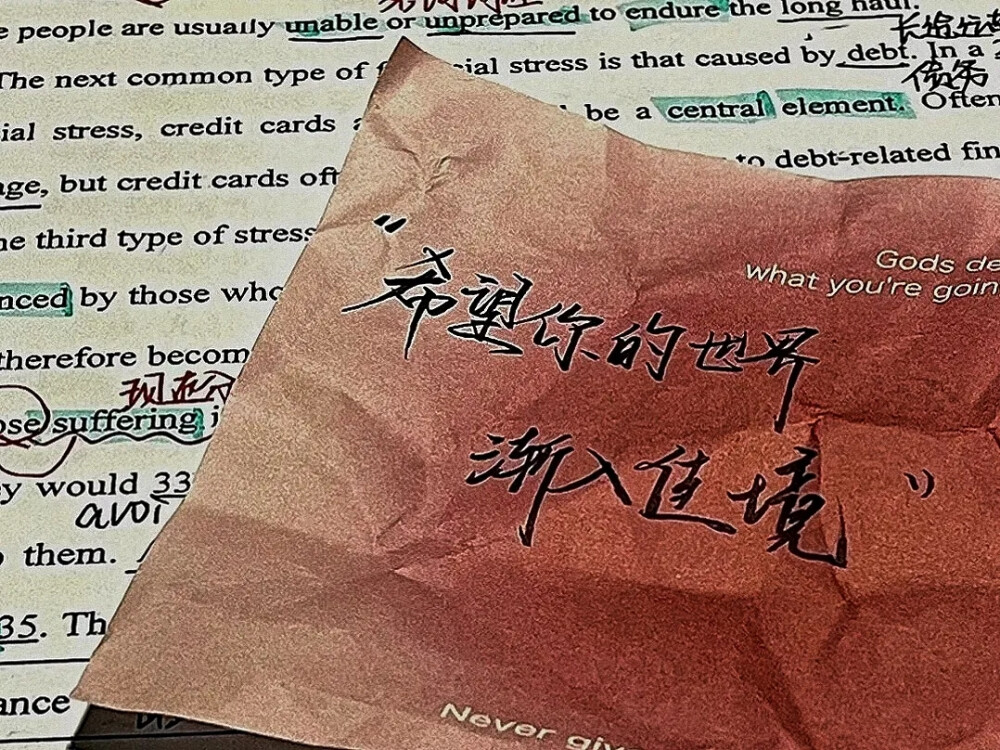 e people are usually unable or unprepared to endure the long haul.
The next common type of cial stress is that caused by debt. In a
债务
ial stress, credit cards be a central element. Often
age, but credit cards oft to debt-related fin
ne third type of stress
nced by those who
therefore becom
现在分
ose suffering i
ey would 33
avoi
them.
35. Th
ance
“希望你的世界
渐入佳境”
Gods de
what you're goin
Never giv